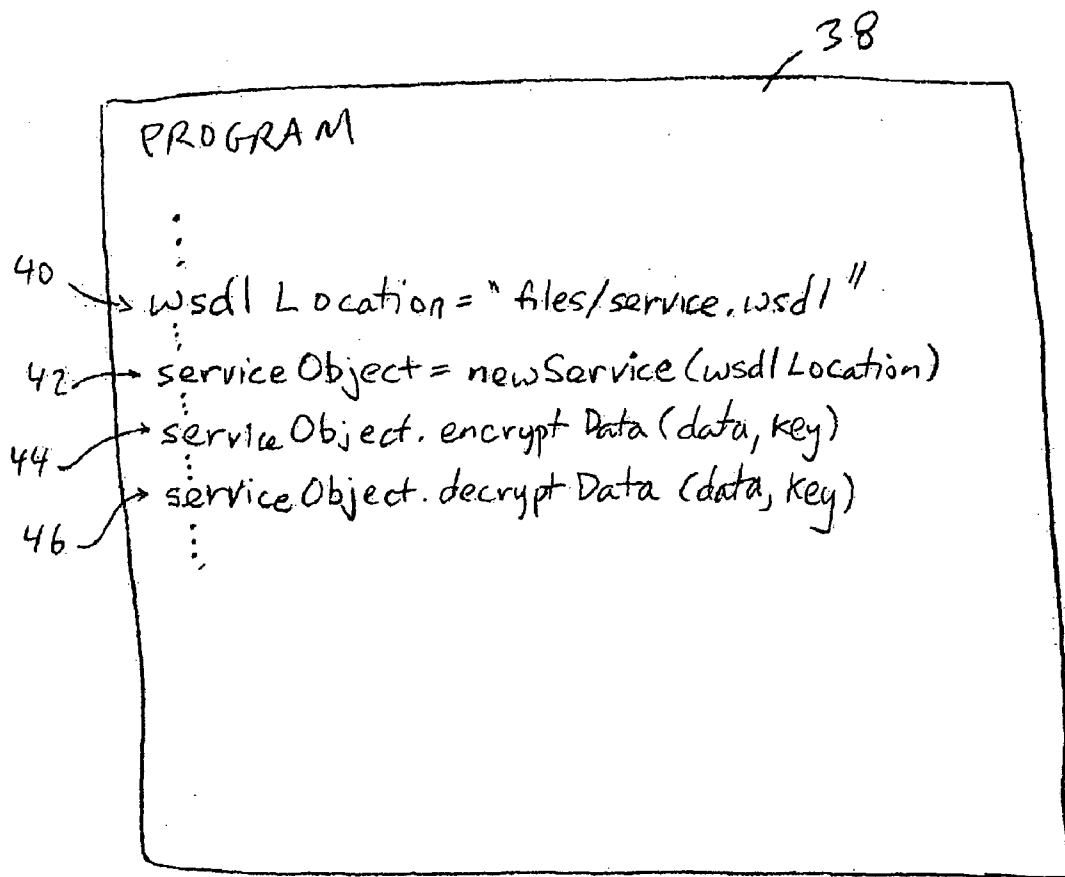 38
PROGRAM
40 wsdl Location = "files/service.wsdl"
42 serviceObject = newService(wsdl Location)
44 serviceObject.encrypt Data (data, key)
46 serviceObject.decrypt Data (data, key)